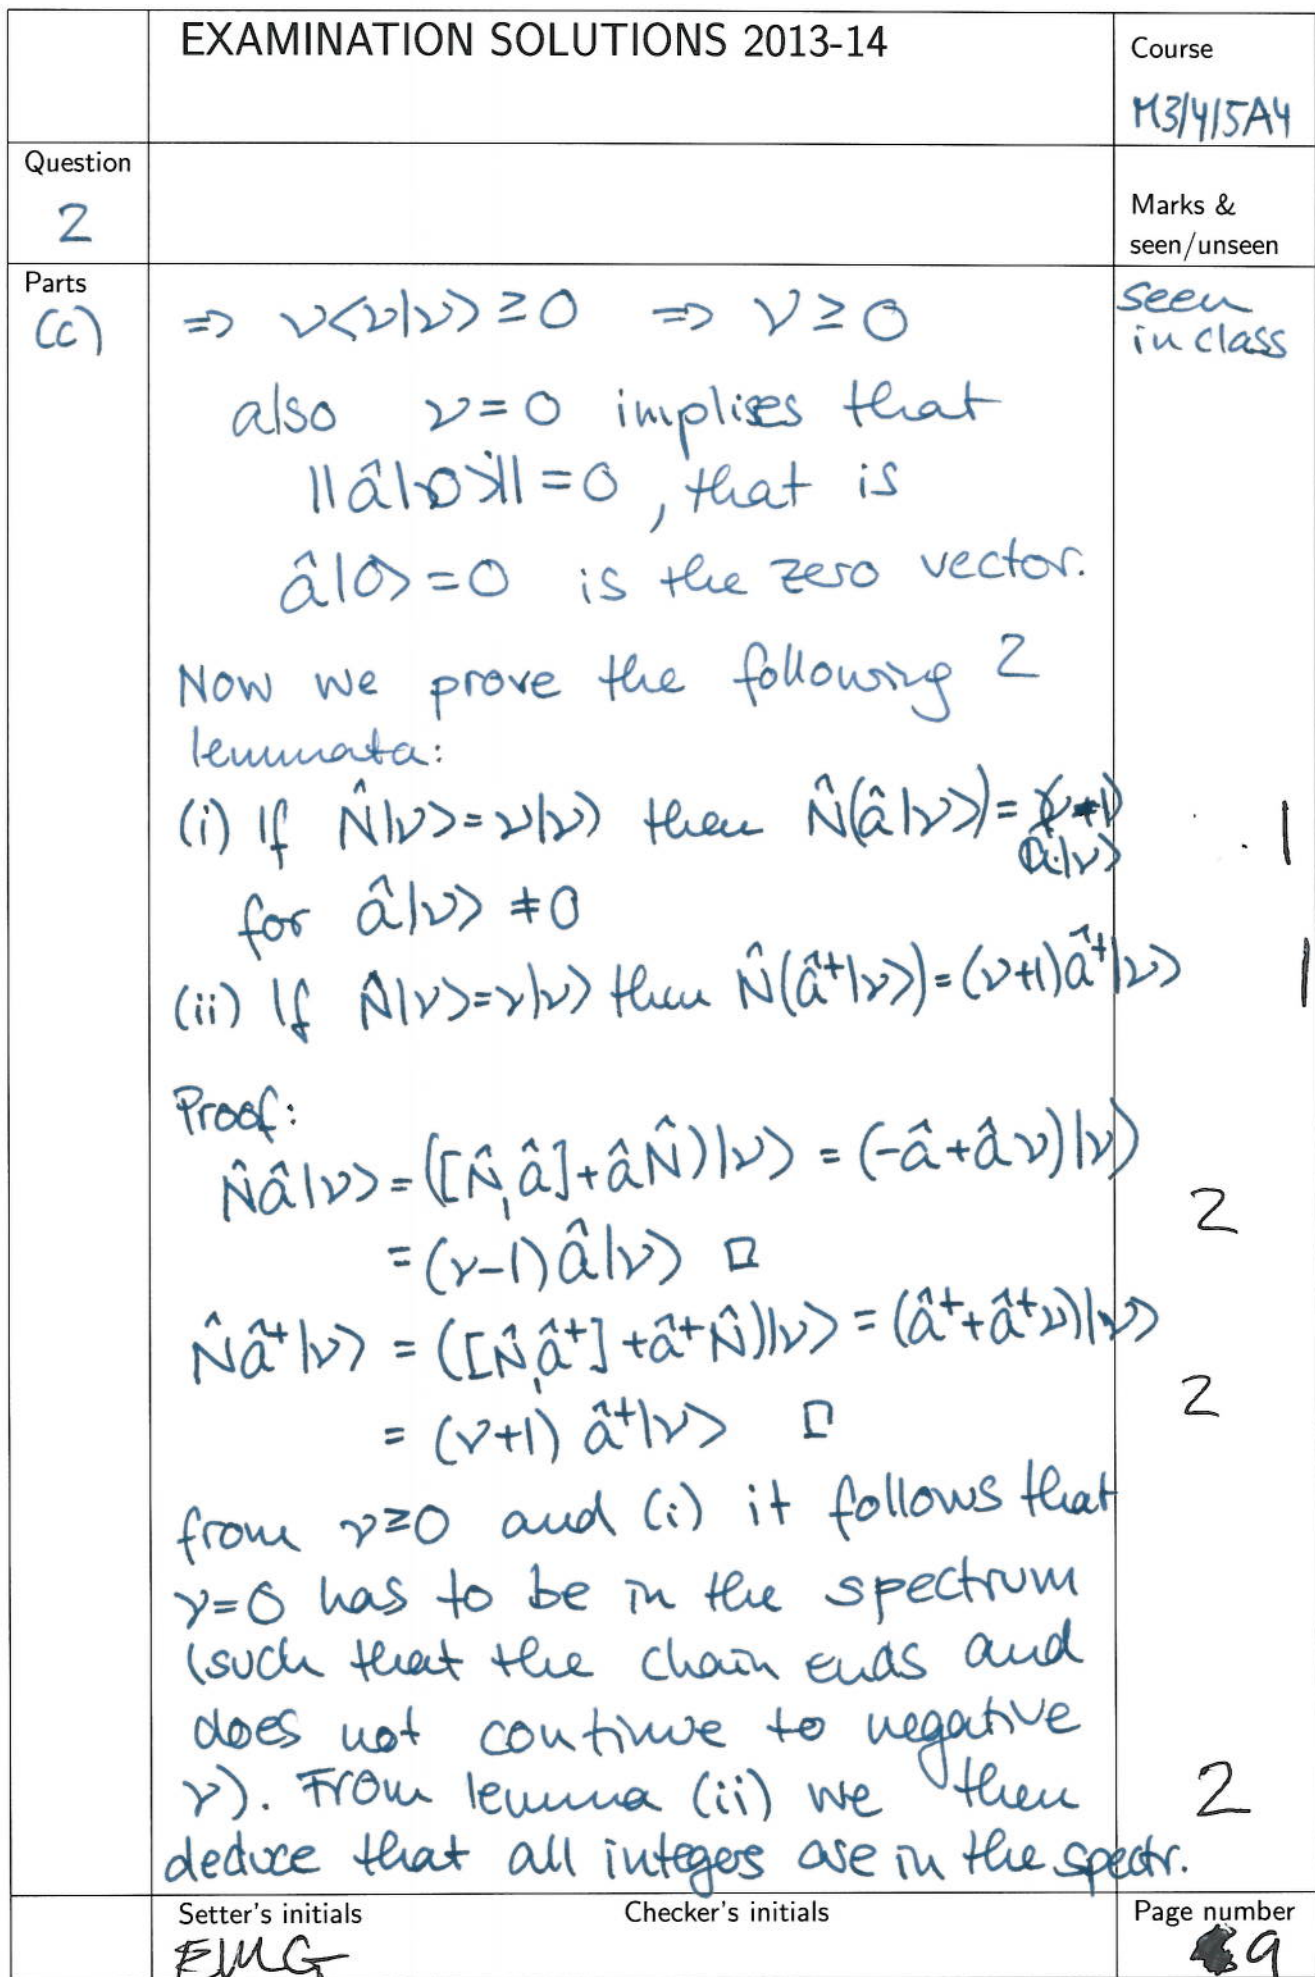 EXAMINATION SOLUTIONS 2013-14
Course
M3/4/5A4
Question
2
Marks &
seen/unseen
Parts
(c)
⇒ ν<ν|ν> ≥ 0 ⇒ ν ≥ 0
seen
in class
also ν=0 implies that
||â|0>|| = 0, that is
â|0> = 0 is the zero vector.
Now we prove the following 2
lemmata:
(i) If N̂|ν> = ν|ν> then N̂(â|ν>) =
â|ν>
1
for â|ν> ≠ 0
(ii) If N̂|ν> = ν|ν> then N̂(â⁺|ν>) = (ν+1)â⁺|ν>
1
Proof:
N̂â|ν> = ([N̂,â]+âN̂)|ν> = (-â+âν)|ν>
= (ν-1)â|ν> □
2
N̂â⁺|ν> = ([N̂,â⁺]+â⁺N̂)|ν> = (â⁺+â⁺ν)|ν>
= (ν+1) â⁺|ν> □
2
from ν≥0 and (i) it follows that
ν=0 has to be in the spectrum
(such that the chain ends and
does not continue to negative
ν). From lemma (ii) we then
2
deduce that all integers are in the spectr.
Setter's initials
EMG
Checker's initials
Page number
9